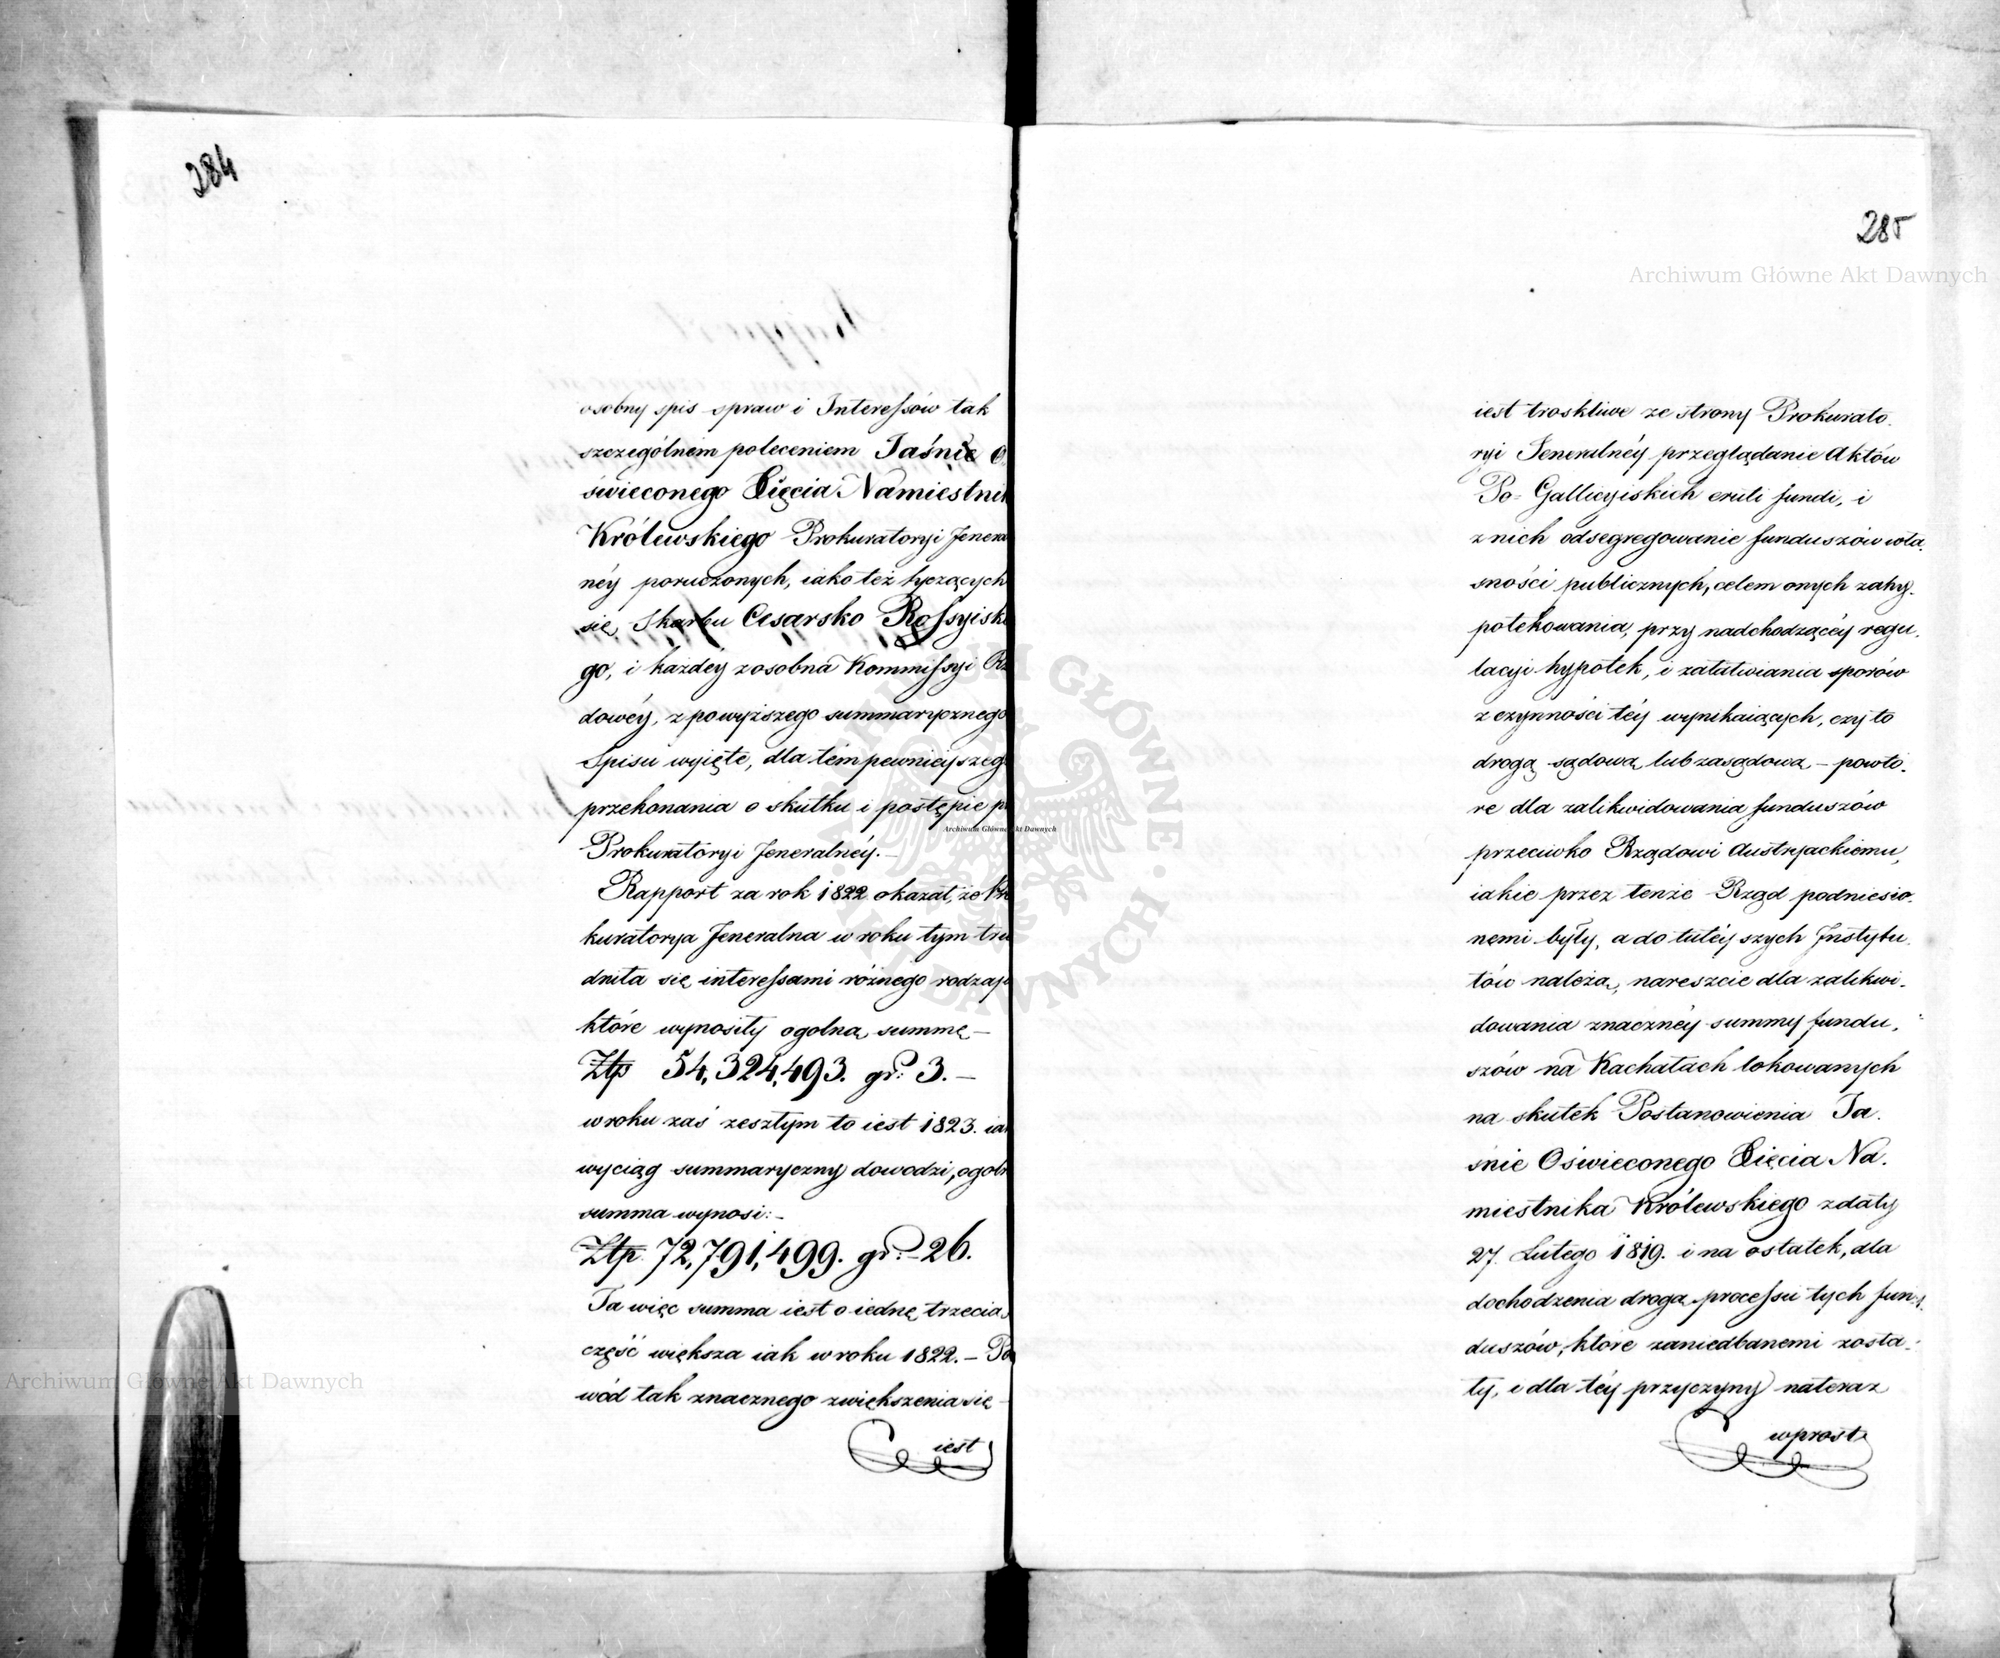 284
osobny spis spraw i Interessów tak
szczególnem poleceniem Jaśnie O
świeconego Xięcia Namiestnik
Królewskiego Prokuratoryi Jenera
néy poruczonych, iako też tyczących
się Skarbu Cesarsko Rossyiskie
go, i każdey zosobna Kommissyi Rz
dowéy, z powyższego summarycznego
Spisu wyięte, dla tém pewnieyszego
przekonania o skutku i postępie p
Prokuratoryi Jeneralnéy.—
Rapport za rok 1822 okazał, że Pro
kuratorya Jeneralna w roku tym tru
dniła się interessami różnego rodzaju
które wynosiły ogolną summę —
Złp 54,324,493. gr: 3.—
w roku zaś zeszłym to iest 1823. iak
wyciąg summaryczny dowodzi, ogoln
summa wynosi:—
Złp. 72,791,499. gr:— 26.
Ta więc summa iest o iednę trzecią
część większa iak w roku 1822.— Po
wód tak znacznego zwiększenia się
iest
285
iest troskliwe ze strony Prokurato.
ryi Jeneralnéy przeglądanie Aktów
Po= Gallicyiskich eruti fundi, i
z nich odsegregowanie funduszów wła.
sności publicznych, celem onych zahy.
potekowania, przy nadchodzącéy regu.
lacyi hypotek, i załatwiania sporów
z czynności téy wynikaiących, czy to
drogą sądową lub zasądową — powtó.
re dla zalikwidowania funduszów
przeciwko Rządowi Austryackiemu,
iakie przez tenże Rząd podniesio.
nemi były, a do tutéyszych Instytu.
tów należą, nareszcie dla zalikwi.
dowania znacznéy summy fundu.
szów na Kachałach lokowanych
na skutek Postanowienia Ja.
śnie Oświeconego Xięcia Na.
miestnika Królewskiego z daty
27. Lutego 1819. i na ostatek, dla
dochodzenia drogą processu tych fun.
duszów, które zaniedbanemi zosta.
ły, i dla téy przyczyny nateraz
wprost
Archiwum Główne Akt Dawnych
Archiwum Główne Akt Dawnych
Archiwum Główne Akt Dawnych
ARCHIWUM GŁÓWNE AKT DAWNYCH